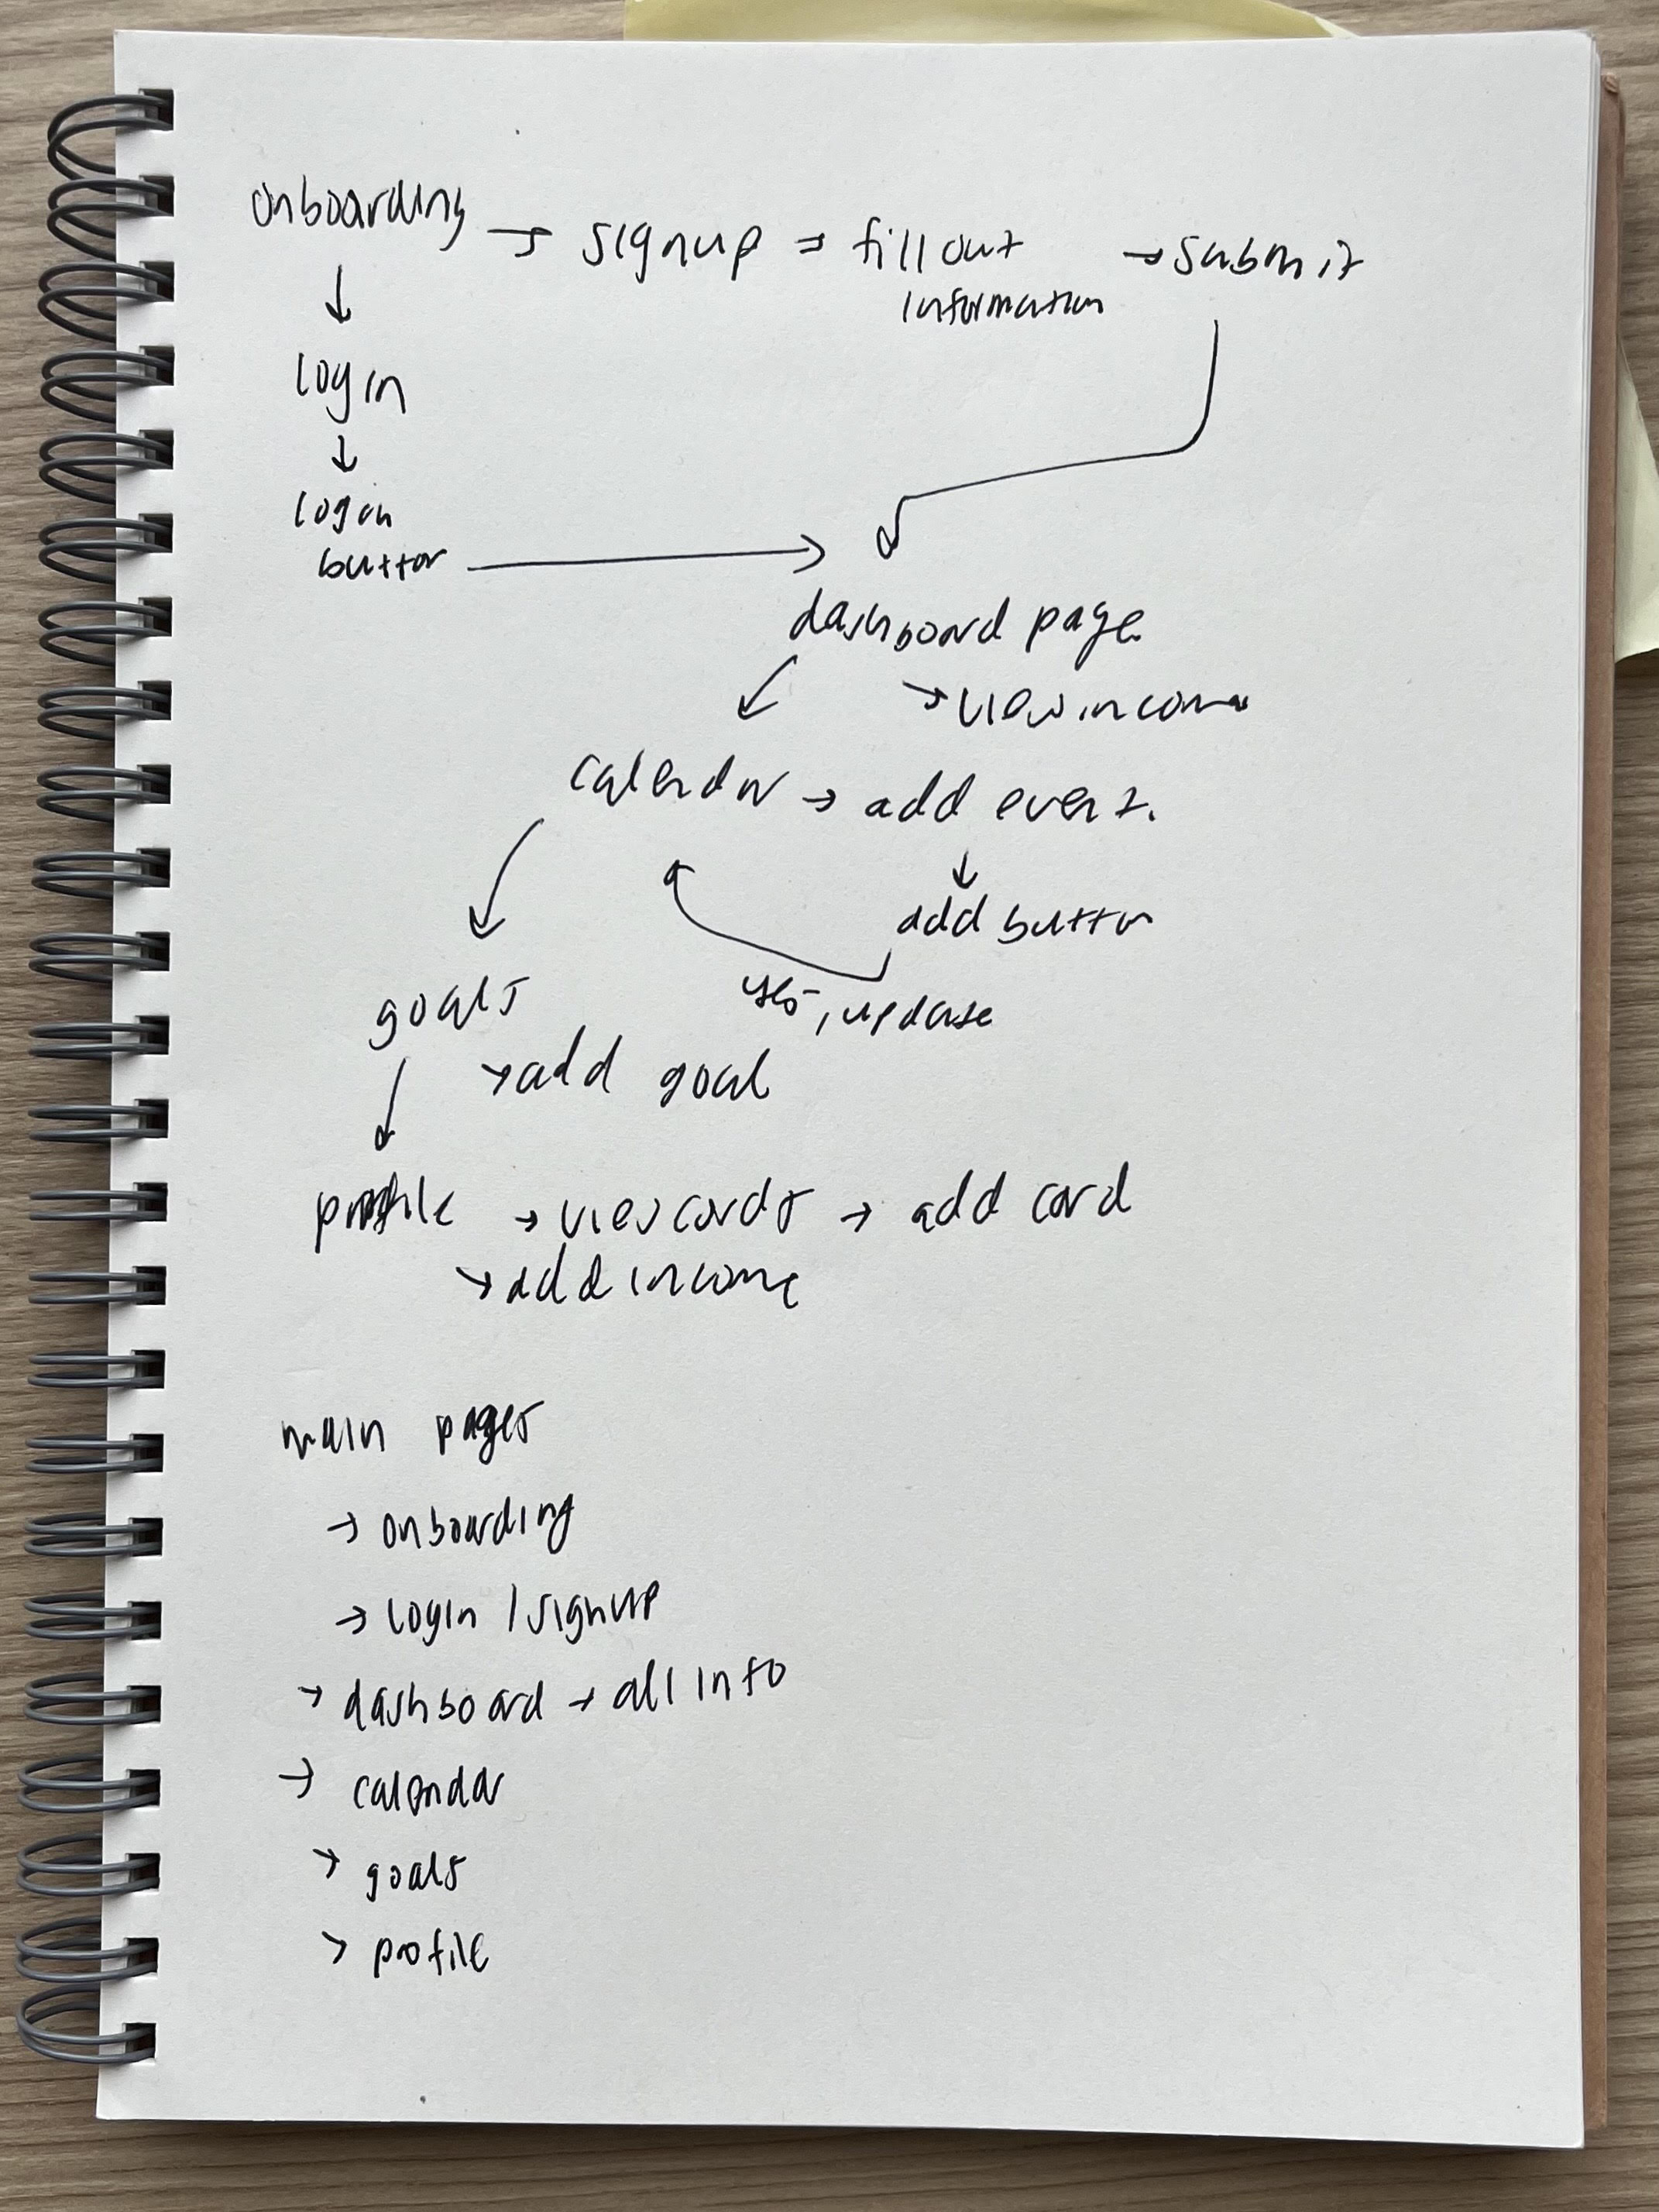 onboarding → signup → fill out → submit
information
↓
login
↓
login
button →
dashboard page
→ view income
calendar → add event.
↓
add button
yes, update
goals
→ add goal
profile → view cards → add card
→ add income
main pages
→ onboarding
→ login / signup
→ dashboard → all info
→ calendar
→ goals
→ profile